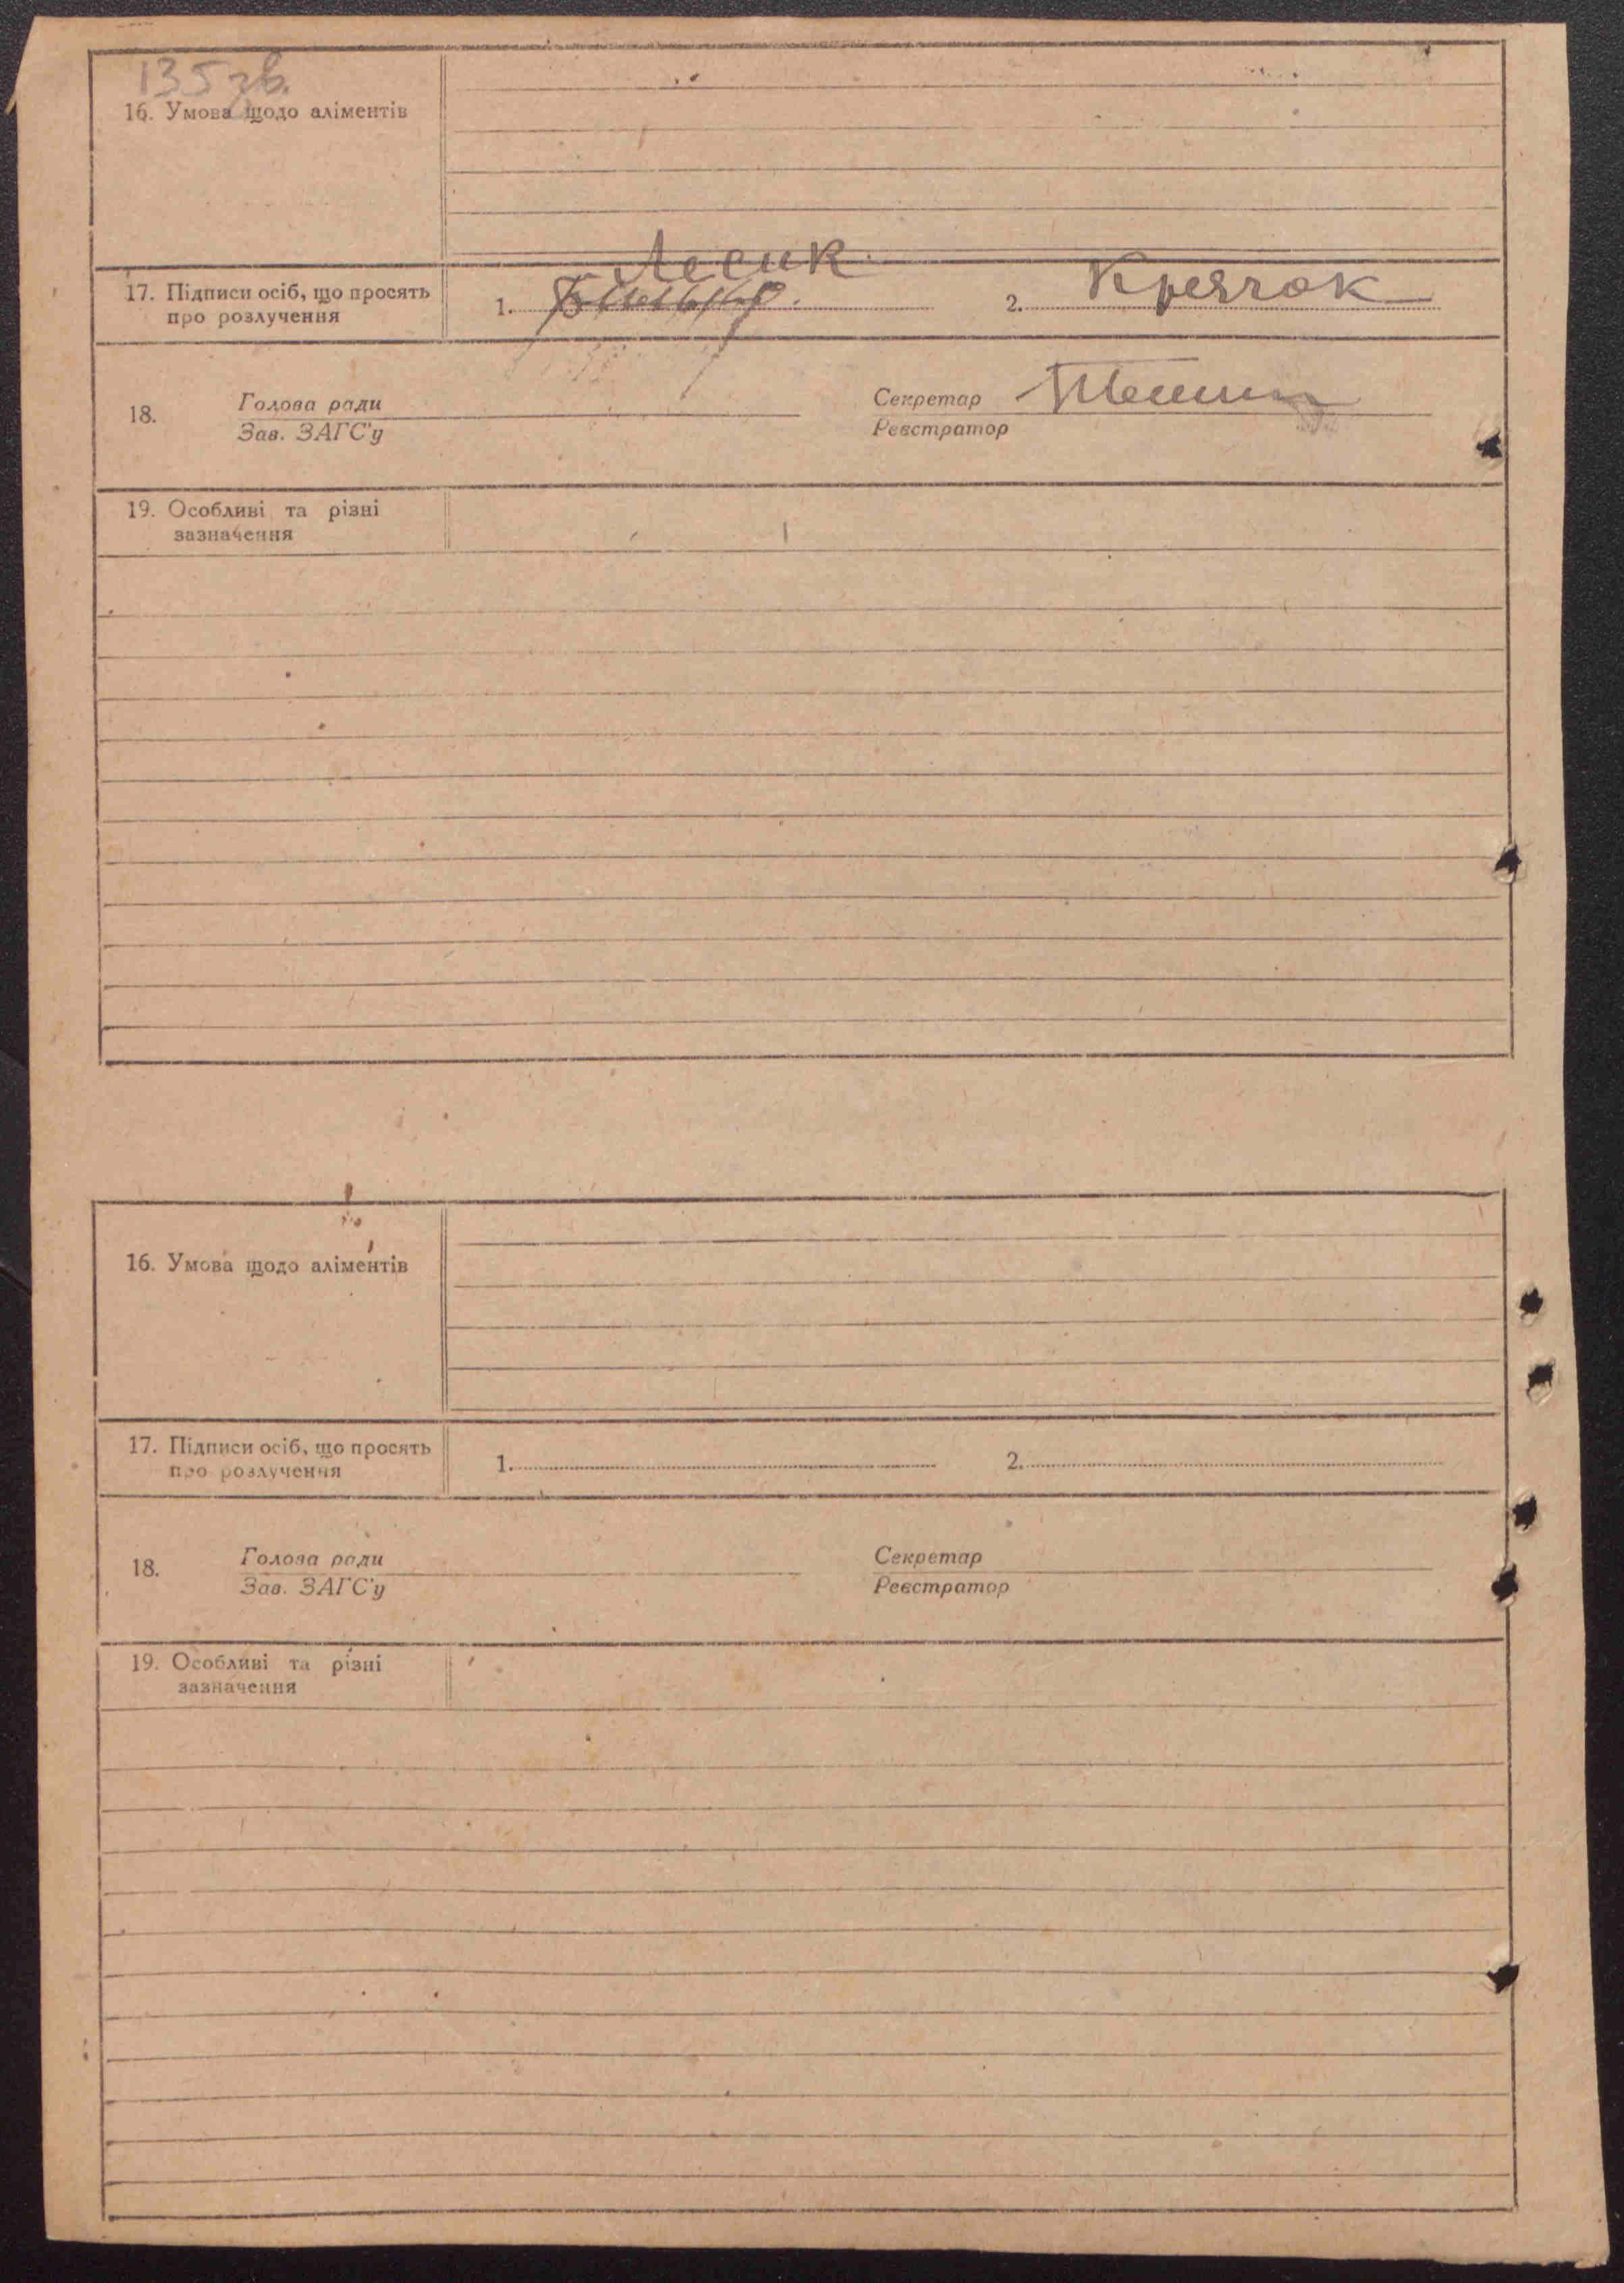 135 зв.
16. Умова щодо аліментів
Лесик
17. Підписи осіб, що просять
про розлучення
1.
2. Кречок
18.
Голова ради
Зав. ЗАГС'у
Секретар
Реєстратор
19. Особливі та різні
зазначення
16. Умова щодо аліментів
17. Підписи осіб, що просять
про розлучення
1.
2.
18.
Голова ради
Зав. ЗАГС'у
Секретар
Реєстратор
19. Особливі та різні
зазначення